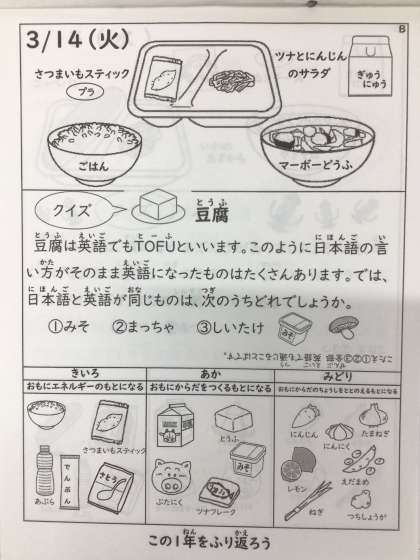 B
3/14(火)
さつまいもスティック
プラ
ツナとにんじん
のサラダ
ぎゅう
にゅう
ごはん
マーボーどうふ
クイズ
とうふ
豆腐
とうふ えいご とーふ にほんご い
豆腐は英語でもTOFUといいます。このように日本語の言
かた えいご
い方がそのまま英語になったものはたくさんあります。では、
にほんご えいご おな つぎ
日本語と英語が同じものは、次のうちどれでしょうか。
①みそ ②まっちゃ ③しいたけ
みそ
きいろ
おもにエネルギーのもとになる
さつまいもスティック
あぶら
でんぷん
さとう
あか
おもにからだをつくるもとになる
とうふ
みそ
ぶたにく
ツナフレーク
みどり
おもにからだのちょうしをととのえるもとになる
にんじん
にんにく
たまねぎ
レモン
えだまめ
ねぎ
つちしょうが
ねん かえ
この1年をふり返ろう